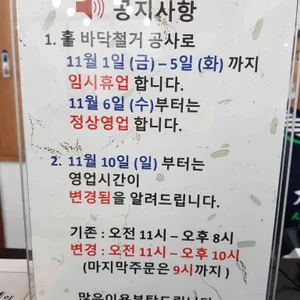 공지사항
1. 홀 바닥철거 공사로
11월 1일 (금) – 5일 (화) 까지
임시휴업 합니다.
11월 6일 (수)부터는
정상영업 합니다.
2. 11월 10일 (일) 부터는
영업시간이
변경됨을 알려드립니다.
기존 : 오전 11시 – 오후 8시
변경 : 오전 11시 – 오후 10시
(마지막주문은 9시까지)
많은이용부탁드립니다